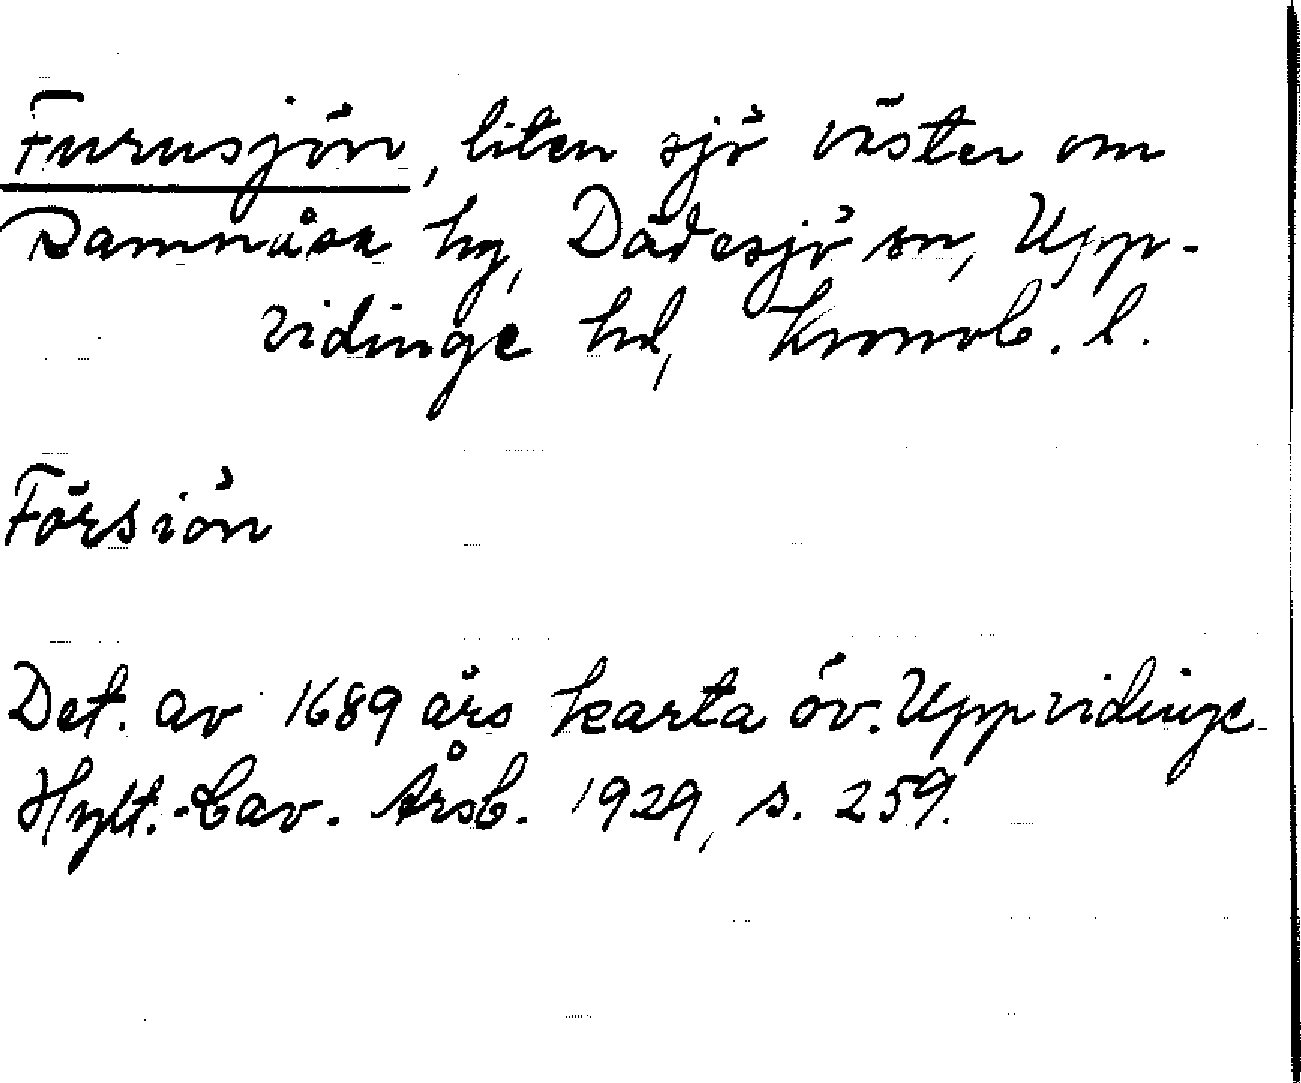 Furusjön, liten sjö väster om
Ramnåsa by, Dädesjö sn, Upp-
vidinge hd, Kronob. l.
Försiön
Det. av 1689 års karta öv. Uppvidinge
Hylt.-Cav. Årsb. 1929, s. 259.